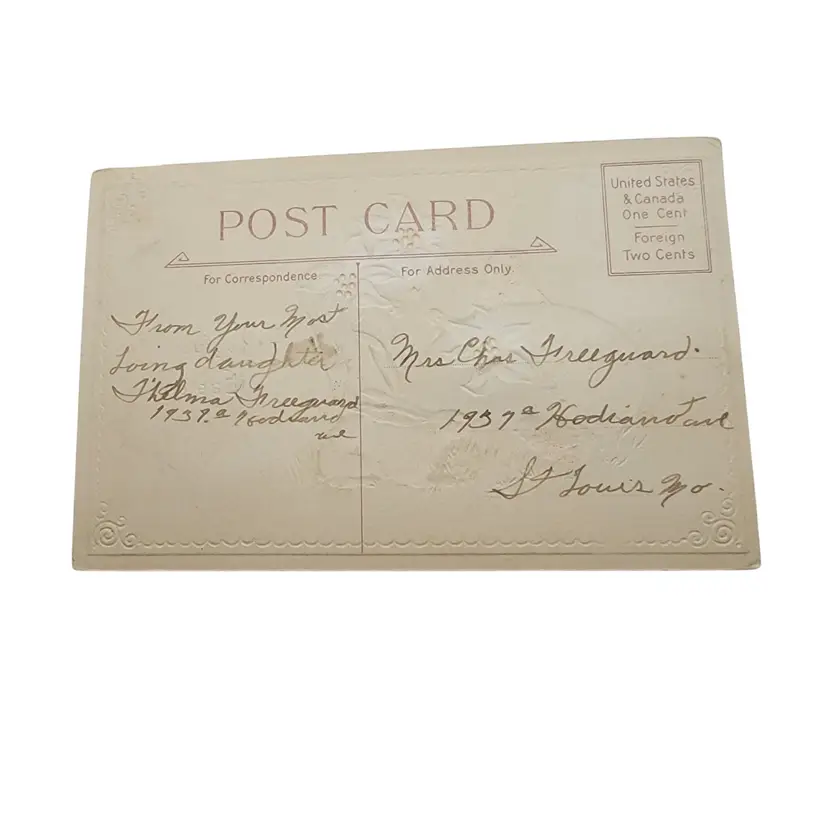 POST CARD
United States
& Canada
One Cent
Foreign
Two Cents
For Correspondence
For Address Only.
From Your Most
Loving daughter
Thelma Freeguard
1937.a Hodiamont
ave
Mrs Chas Freeguard.
1937a Hodiamont ave
St Louis Mo.